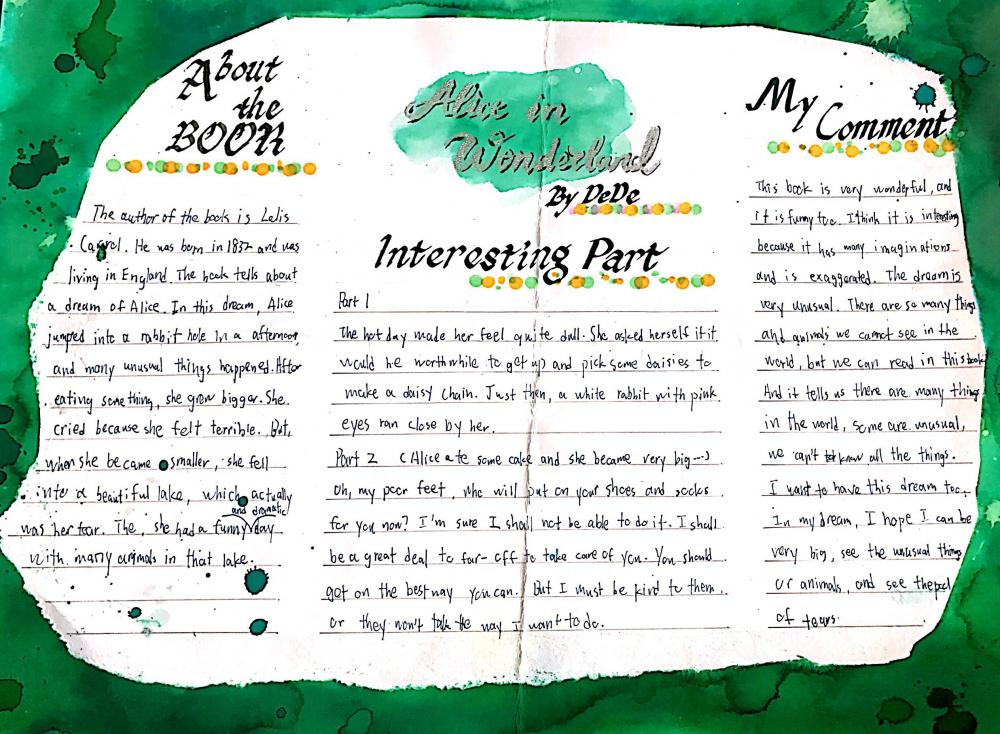 About
the
BOOK
The author of the book is Lelis
Carrol. He was born in 1832 and was
living in England. The book tells about
a dream of Alice. In this dream, Alice
jumped into a rabbit hole In a afternoon,
and many unusual things happened. After
eating something, she grew bigger. She
cried because she felt terrible. But,
when she became smaller, she fell
into a beautiful lake, which actually
and dramatic
was her tear. The, she had a funny day
with many animals in that lake.
Alice in
Wonderland
By DeDe
Interesting Part
Part 1
The hot day made her feel quite dull. She asked herself if it
would be worthwhile to get up and pick some daisies to
make a daisy chain. Just then, a white rabbit with pink
eyes ran close by her.
Part 2 (Alice ate some cake and she became very big---)
Oh, my poor feet, who will put on your shoes and socks
for you now? I'm sure I shall not be able to do it. I shall
be a great deal to far-off to take care of you. You should
get on the best way you can. But I must be kind to them,
or they won't talk the way I want to do.
My
Comment
This book is very wonderful, and
it is funny too. I think it is interesting
because it has many imaginations
and is exaggerated. The dream is
very unusual. There are so many things
and animals we cannot see in the
world, but we can read in this book
And it tells us there are many things
in the world, some are unusual,
we can't know all the things.
I want to have this dream too.
In my dream, I hope I can be
very big, see the unusual things
or animals, and see the pool
of tears.